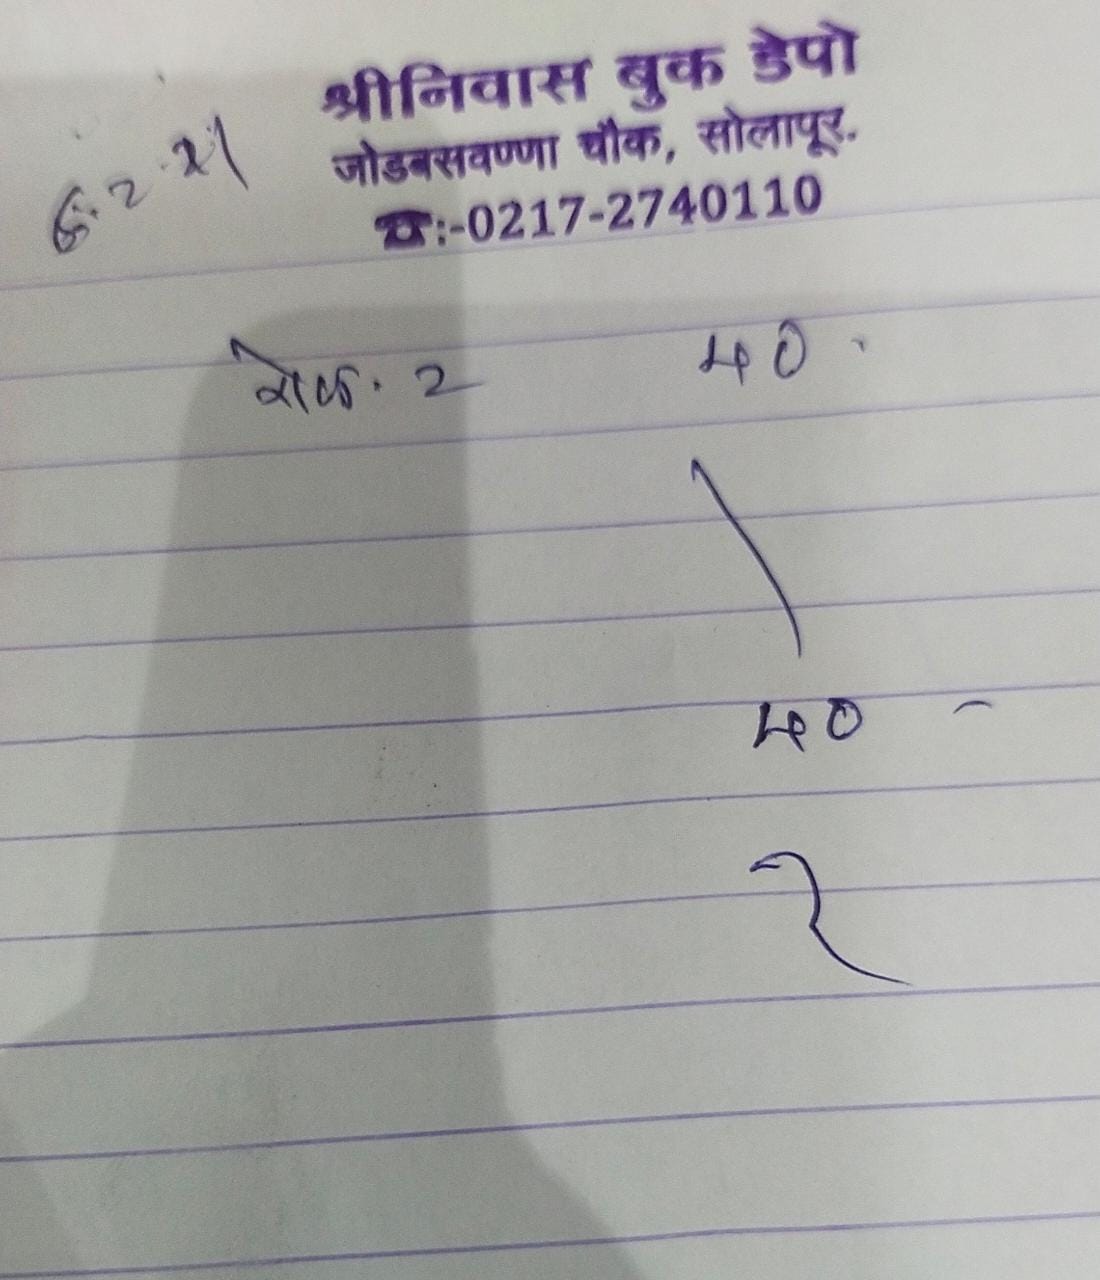 श्रीनिवास बुक डेपो
जोडबसवण्णा चौक, सोलापूर.
☎:-0217-2740110
2 40
40